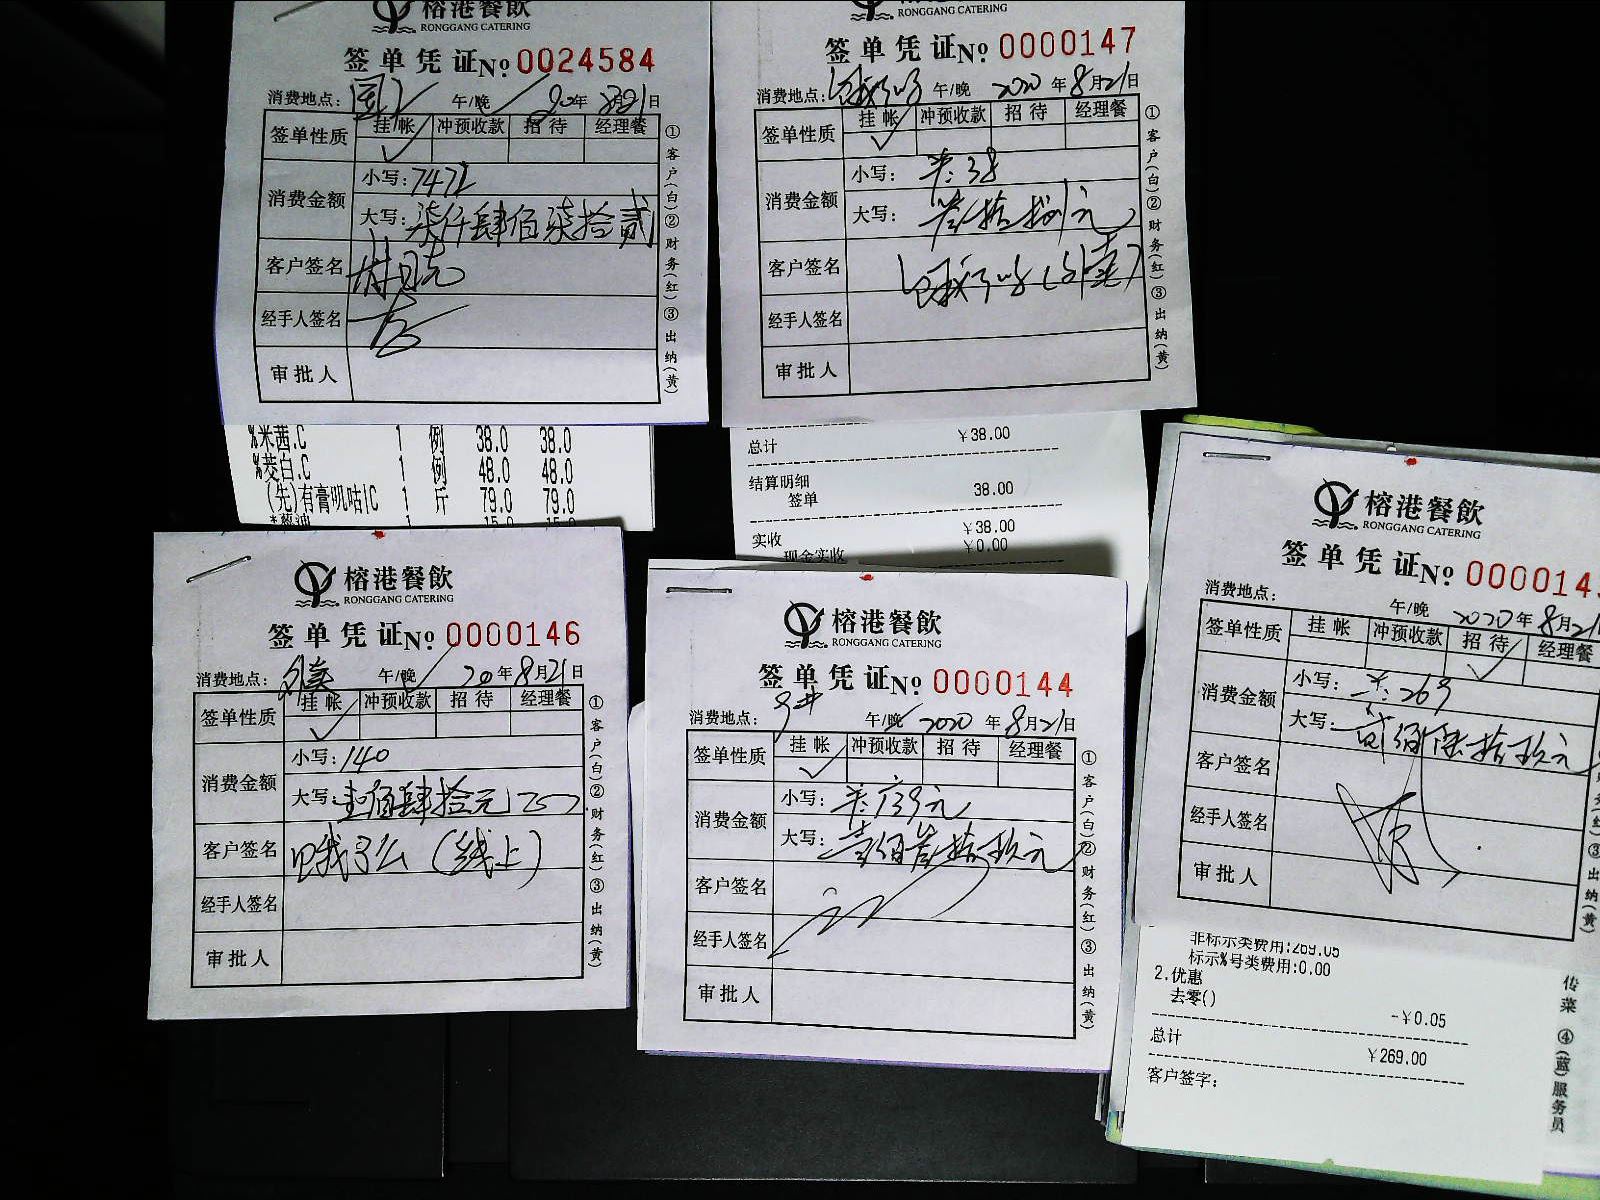 榕港餐飲
RONGGANG CATERING
签单凭证No 0024584
消费地点: 午/晚 20年8月21日
签单性质 挂帐 冲预收款 招待 经理餐
消费金额 小写: 7472
大写: 柒仟肆佰柒拾贰
客户签名
经手人签名
审批人
①客户(白)②财务(红)③出纳(黄)
%米茜.C 1 例 38.0 38.0
%茭白.C 1 例 48.0 48.0
(先)有膏呱咕IC 1 斤 79.0 79.0
RONGGANG CATERING
签单凭证No 0000147
消费地点: 饿了吗 午/晚 2020年8月21日
签单性质 挂帐 冲预收款 招待 经理餐
消费金额 小写: 38
大写: 叁拾捌元
客户签名 饿了吗(外卖)
经手人签名
审批人
①客户(白)②财务(红)③出纳(黄)
总计 ¥38.00
结算明细
签单 38.00
实收 ¥38.00
现金实收 ¥0.00
榕港餐飲
RONGGANG CATERING
签单凭证No 0000146
消费地点: 外卖 午/晚 20年8月21日
签单性质 挂帐 冲预收款 招待 经理餐
消费金额 小写: 140
大写: 壹佰肆拾元
客户签名 饿了么(线上)
经手人签名
审批人
①客户(白)②财务(红)③出纳(黄)
榕港餐飲
RONGGANG CATERING
签单凭证No 0000144
消费地点: 午/晚 2020年8月21日
签单性质 挂帐 冲预收款 招待 经理餐
消费金额 小写: 139元
大写: 壹佰叁拾玖元
客户签名
经手人签名
审批人
①客户(白)②财务(红)③出纳(黄)
榕港餐飲
RONGGANG CATERING
签单凭证No 000014
消费地点: 午/晚 2020年8月21
签单性质 挂帐 冲预收款 招待 经理餐
消费金额 小写: 269
大写: 贰佰陆拾玖元
客户签名
经手人签名
审批人
③出纳(黄)
非标示类费用:269.05
标示%号类费用:0.00
2.优惠
去零()
-¥0.05
总计 ¥269.00
客户签字:
传菜 ④(蓝)服务员